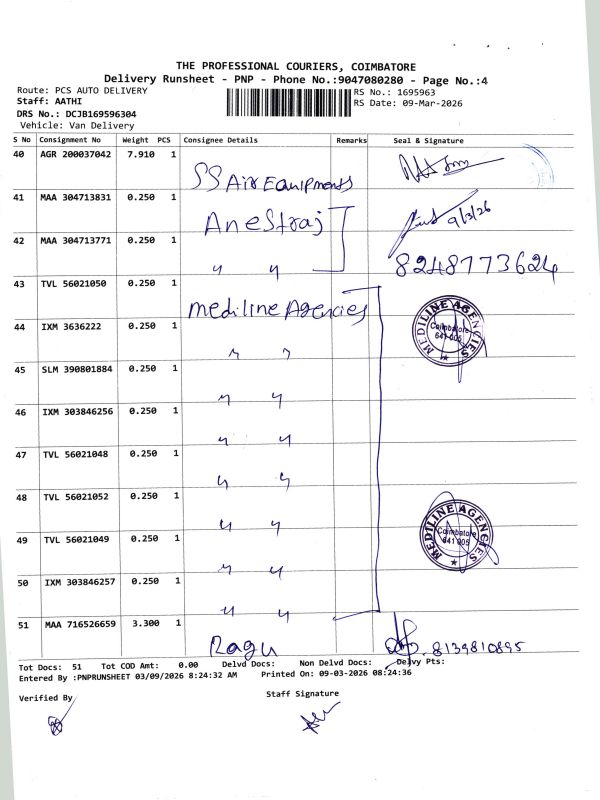 THE PROFESSIONAL COURIERS, COIMBATORE
Delivery Runsheet - PNP - Phone No.:9047080280 - Page No.:4
Route: PCS AUTO DELIVERY
RS No.: 1695963
Staff: AATHI
RS Date: 09-Mar-2026
DRS No.: DCJB169596304
Vehicle: Van Delivery
S No Consignment No Weight PCS Consignee Details Remarks Seal & Signature
40 AGR 200037042 7.910 1 SS Air Equipments
41 MAA 304713831 0.250 1 Anestraj 9/3/26
42 MAA 304713771 0.250 1 〃 〃 8248773624
43 TVL 56021050 0.250 1 mediline Agencies
MEDILINE AGENCIES
Coimbatore
641 005
44 IXM 3636222 0.250 1 〃 〃
45 SLM 390801884 0.250 1 〃 〃
46 IXM 303846256 0.250 1 〃 〃
47 TVL 56021048 0.250 1 〃 〃
48 TVL 56021052 0.250 1 〃 〃
MEDILINE AGENCIES
Coimbatore
641 005
49 TVL 56021049 0.250 1 〃 〃
50 IXM 303846257 0.250 1 〃 〃
51 MAA 716526659 3.300 1 Ragu 8139810895
Tot Docs: 51 Tot COD Amt: 0.00 Delvd Docs: Non Delvd Docs: Delvy Pts:
Entered By :PNPRUNSHEET 03/09/2026 8:24:32 AM Printed On: 09-03-2026 08:24:36
Verified By
Staff Signature